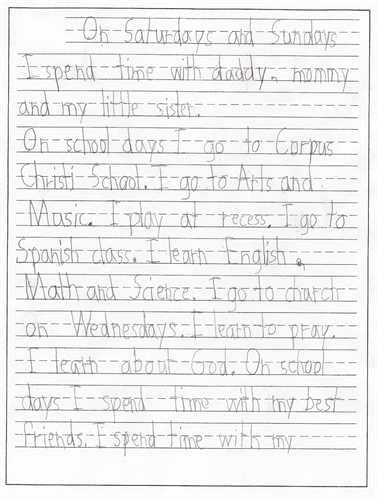 On Saturdays and Sundays
I spend time with daddy, mommy
and my little sister.
On school days I go to Corpus
Christi School. I go to Arts and
Music. I play at recess. I go to
Spanish class. I learn English,
Math and Science. I go to church
on Wednesdays. I learn to pray.
I learn about God. On school
days I spend time with my best
friends. I spend time with my